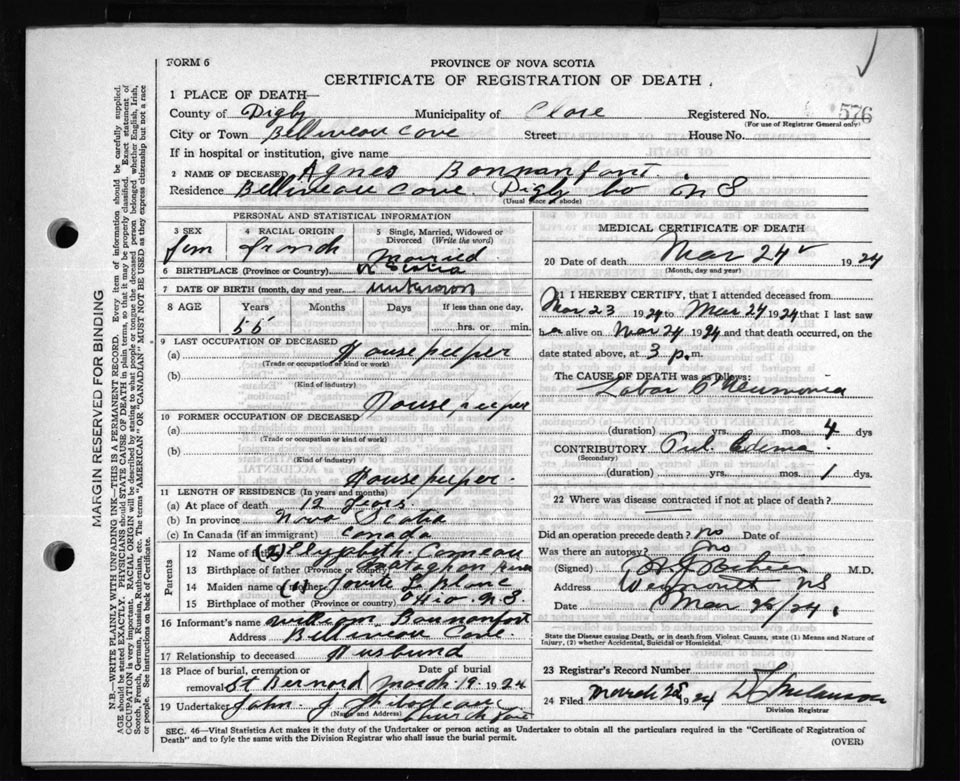 FORM 6
PROVINCE OF NOVA SCOTIA
CERTIFICATE OF REGISTRATION OF DEATH
1 PLACE OF DEATH—
County of Digby Municipality of Clare Registered No. 576
(For use of Registrar General only)
City or Town Belliveau Cove Street House No.
If in hospital or institution, give name
2 NAME OF DECEASED Agnes Bonnanfant
Residence Belliveau Cove Digby Co N S
(Usual place of abode)
PERSONAL AND STATISTICAL INFORMATION
3 SEX 4 RACIAL ORIGIN 5 Single, Married, Widowed or Divorced (Write the word)
fem french Married
6 BIRTHPLACE (Province or Country) N Scotia
7 DATE OF BIRTH (month, day and year) unknown
8 AGE Years Months Days If less than one day,
55 hrs. or min.
9 LAST OCCUPATION OF DECEASED House keeper
(a)
(Trade or occupation or kind or work)
(b)
(Kind of industry)
House keeper
10 FORMER OCCUPATION OF DECEASED
(a)
(Trade or occupation or kind of work)
(b)
(Kind of industry)
House keeper
11 LENGTH OF RESIDENCE (In years and months)
(a) At place of death 12 years
(b) In province Nova Scotia
(c) In Canada (if an immigrant) Canada
Parents
12 Name of father Comeau
13 Birthplace of father (Province or country)
14 Maiden name of mother LeBlanc
15 Birthplace of mother (Province or country) N.S.
16 Informant's name William Bonnanfant
Address Belliveau Cove
17 Relationship to deceased Husband
18 Place of burial, cremation or removal St Bernard Date of burial March 19. 1924
19 Undertaker John J
(Name and Address) Church Point
MEDICAL CERTIFICATE OF DEATH
20 Date of death Mar 24 1924
(Month, day and year)
21 I HEREBY CERTIFY, that I attended deceased from
Mar 23 1924 to Mar 24 1924 that I last saw
h alive on Mar 24 1924 and that death occurred, on the
date stated above, at 3 p.m.
The CAUSE OF DEATH was as follows:
Lobar Pneumonia
(duration) yrs. mos. 4 dys
CONTRIBUTORY Pul. Edema
(Secondary)
(duration) yrs. mos. 1 dys.
22 Where was disease contracted if not at place of death?
Did an operation precede death? no Date of
Was there an autopsy? no
(Signed) M.D.
Address Weymouth NS
Date Mar 26/24
State the Disease causing Death, or in death from Violent Causes, state (1) Means and Nature of Injury, (2) whether Accidental, Suicidal or Homicidal.
23 Registrar's Record Number
24 Filed March 1924
Division Registrar
SEC. 46—Vital Statistics Act makes it the duty of the Undertaker or person acting as Undertaker to obtain all the particulars required in the "Certificate of Registration of
Death" and to fyle the same with the Division Registrar who shall issue the burial permit. (OVER)
MARGIN RESERVED FOR BINDING
N.B.—WRITE PLAINLY WITH UNFADING INK—THIS IS A PERMANENT RECORD. Every item of information should be carefully supplied.
AGE should be stated EXACTLY. PHYSICIANS should STATE CAUSE OF DEATH in plain terms, so that it may be properly classified. Exact statement of
OCCUPATION is very important. RACIAL ORIGIN will be described by stating to what people or tongue the deceased person belonged whether English, Irish,
Scotch, French, German, Russian, Ruthenian, etc. The terms "AMERICAN" OR "CANADIAN" MUST NOT BE USED as they express citizenship but not a race
or people. See instructions on back of Certificate.